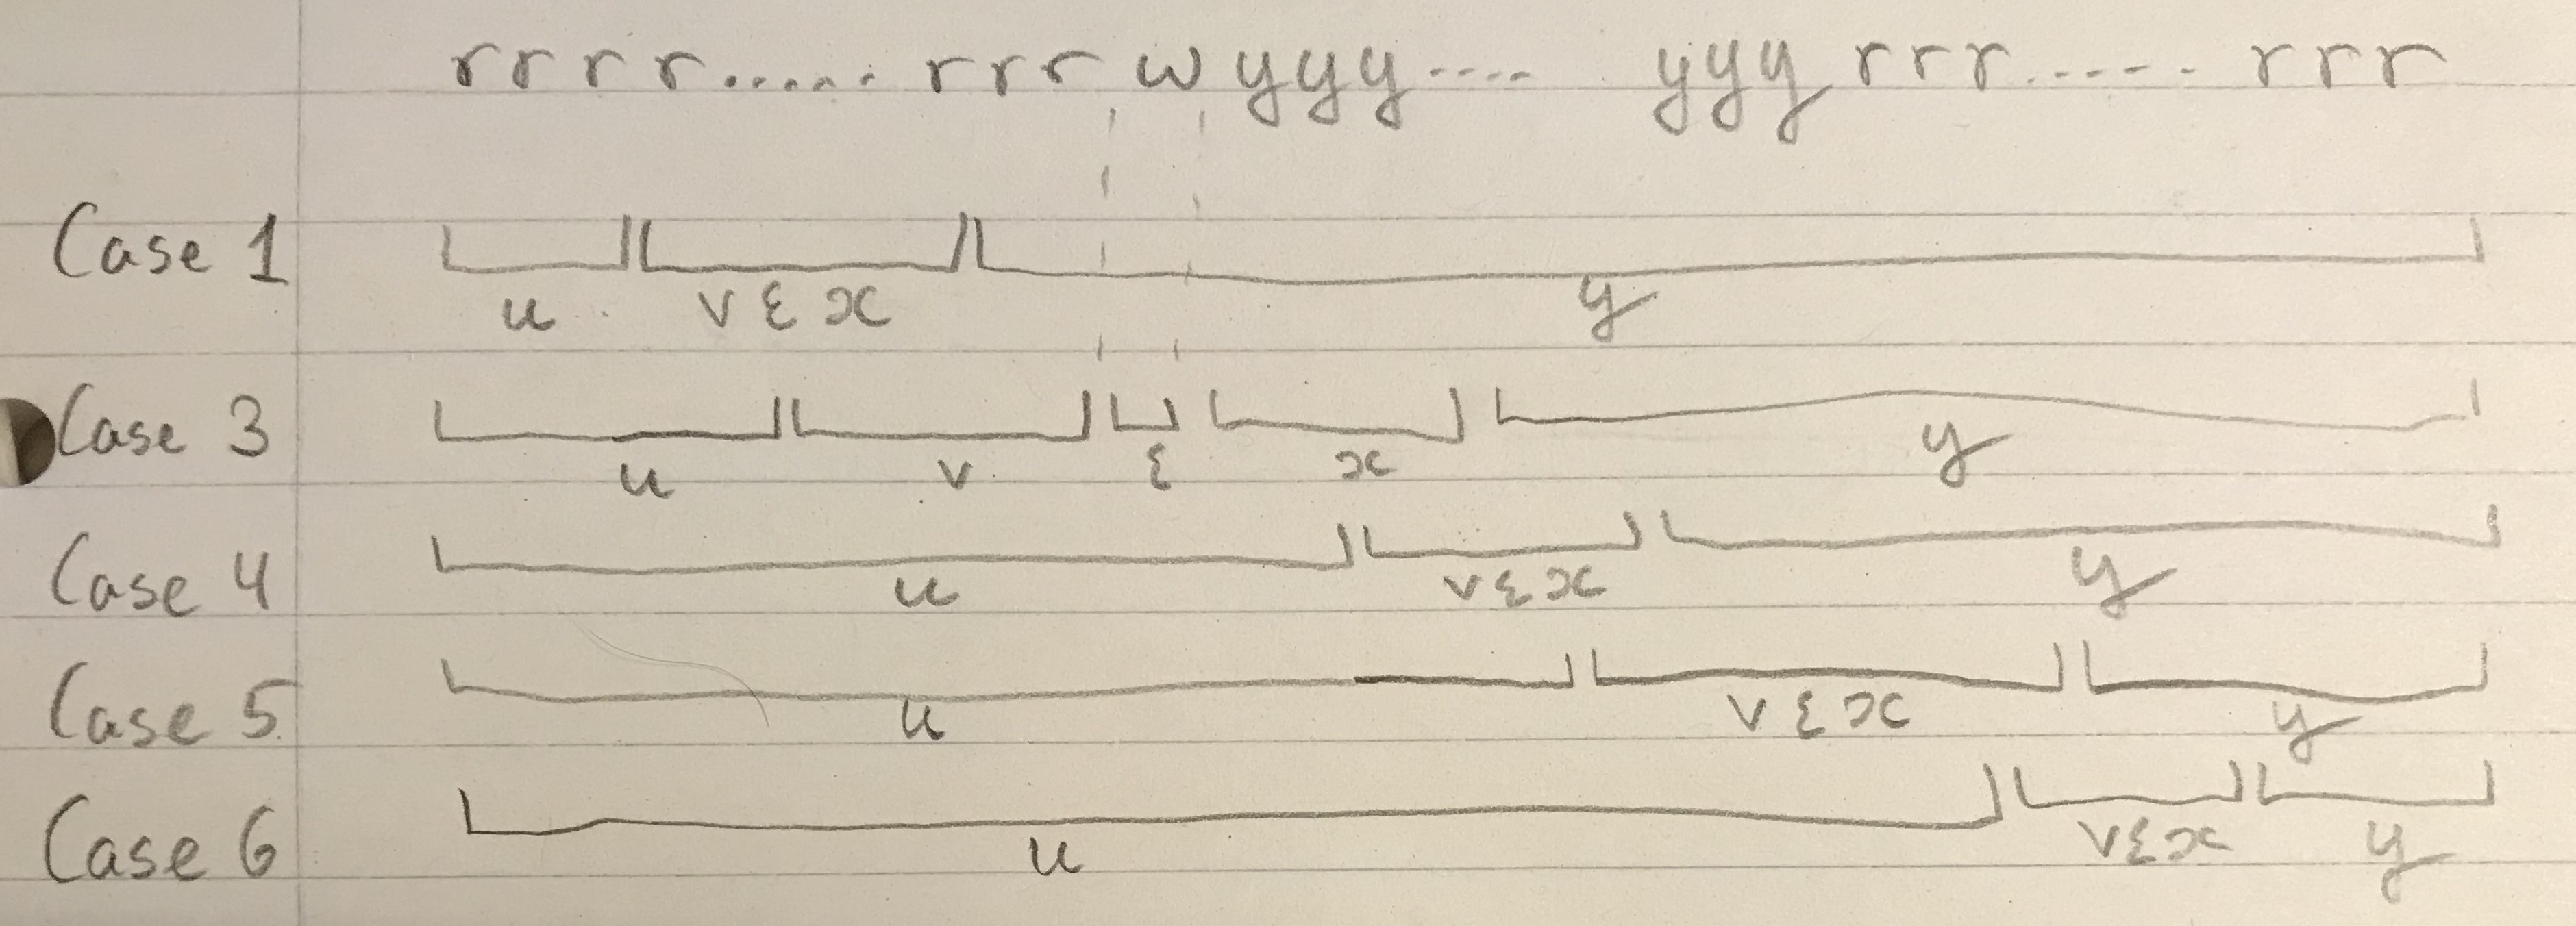 rrrr..... rrrwyyy.... yyyrrr..... rrr
Case 1
u vεx y
Case 3
u v ε x y
Case 4
u vεx y
Case 5
u vεx y
Case 6
u vεx y